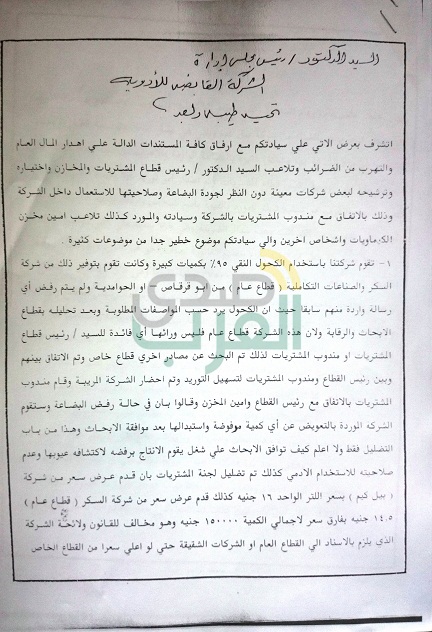 السيد الدكتور / رئيس مجلس إدارة
الشركة القابضة للأدوية
تحية طيبة وبعد
اتشرف بعرض الاتي علي سيادتكم مع ارفاق كافة المستندات الدالة علي اهدار المال العام
والتهرب من الضرائب وتلاعب السيد الدكتور / رئيس قطاع المشتريات والمخازن واختياره
وترشيحه لبعض شركات معينة دون النظر لجودة البضاعة وصلاحيتها للاستعمال داخل الشركة
وذلك بالاتفاق مع مندوب المشتريات بالشركة وسيادته والمورد كذلك تلاعب امين مخزن
الكيماويات واشخاص اخرين والي سيادتكم موضوع خطير جدا من موضوعات كثيرة .
١- تقوم شركتنا باستخدام الكحول النقي ٩٥٪ بكميات كبيرة وكانت تقوم بتوفير ذلك من شركة
السكر والصناعات التكاملية ( قطاع عام ) من ابو قرقاص – او الحوامدية ولم يتم رفض أي
رسالة واردة منهم سابقا حيث ان الكحول يرد حسب المواصفات المطلوبة وبعد تحليله بقطاع
الابحاث والرقابة ولان هذه الشركة قطاع عام فليس ورائها أي فائدة للسيد / رئيس قطاع
المشتريات او مندوب المشتريات لذلك تم البحث عن مصادر اخري قطاع خاص وتم الاتفاق بينهم
وبين رئيس القطاع ومندوب المشتريات لتسهيل التوريد وتم احضار الشركة المريبة وقام مندوب
المشتريات بالاتفاق مع رئيس القطاع وامين المخزن وقالوا بان في حالة رفض البضاعة وستقوم
الشركه الموردة بالتعويض عن أي كمية مرفوضة واستبدالها بعد موافقة الابحاث وهذا من باب
التضليل فقط ولا اعلم كيف توافق الابحاث علي شغل يقوم الانتاج برفضه لاكتشافه عيوبها وعدم
صلاحيته للاستخدام الادمي كذلك تم تضليل لجنة المشتريات بان قدم عرض سعر من شركة
( بيل كيم ) بسعر اللتر الواحد ١٦ جنيه كذلك قدم عرض سعر من شركة السكر ( قطاع عام )
١٤.٥ جنيه بفارق سعر لاجمالي الكمية ١٥٠٠٠٠ جنيه وهو مخالف للقانون ولائحة الشركة
الذي يلزم بالاسناد الي القطاع العام او الشركات الشقيقة حتي لو اعلي سعرا من القطاع الخاص
صدى
العرب